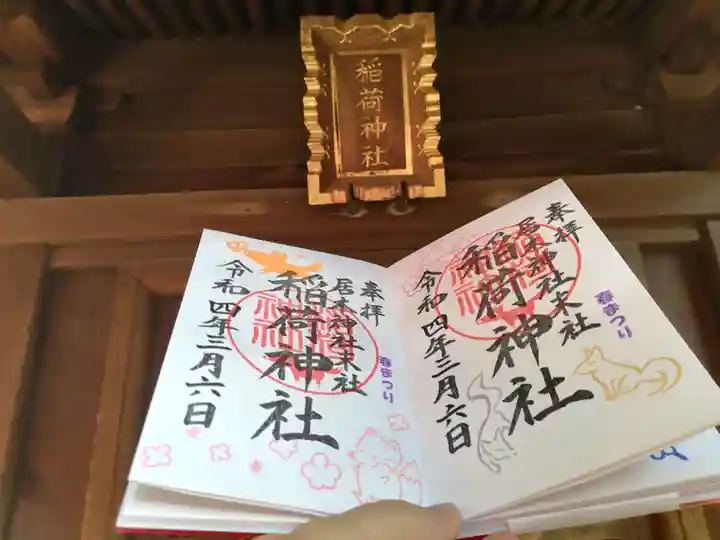 稲荷神社
奉拝
居木神社末社
稲荷神社
令和四年三月六日
春まつり
奉拝
居木神社末社
稲荷神社
令和四年三月六日
春まつり